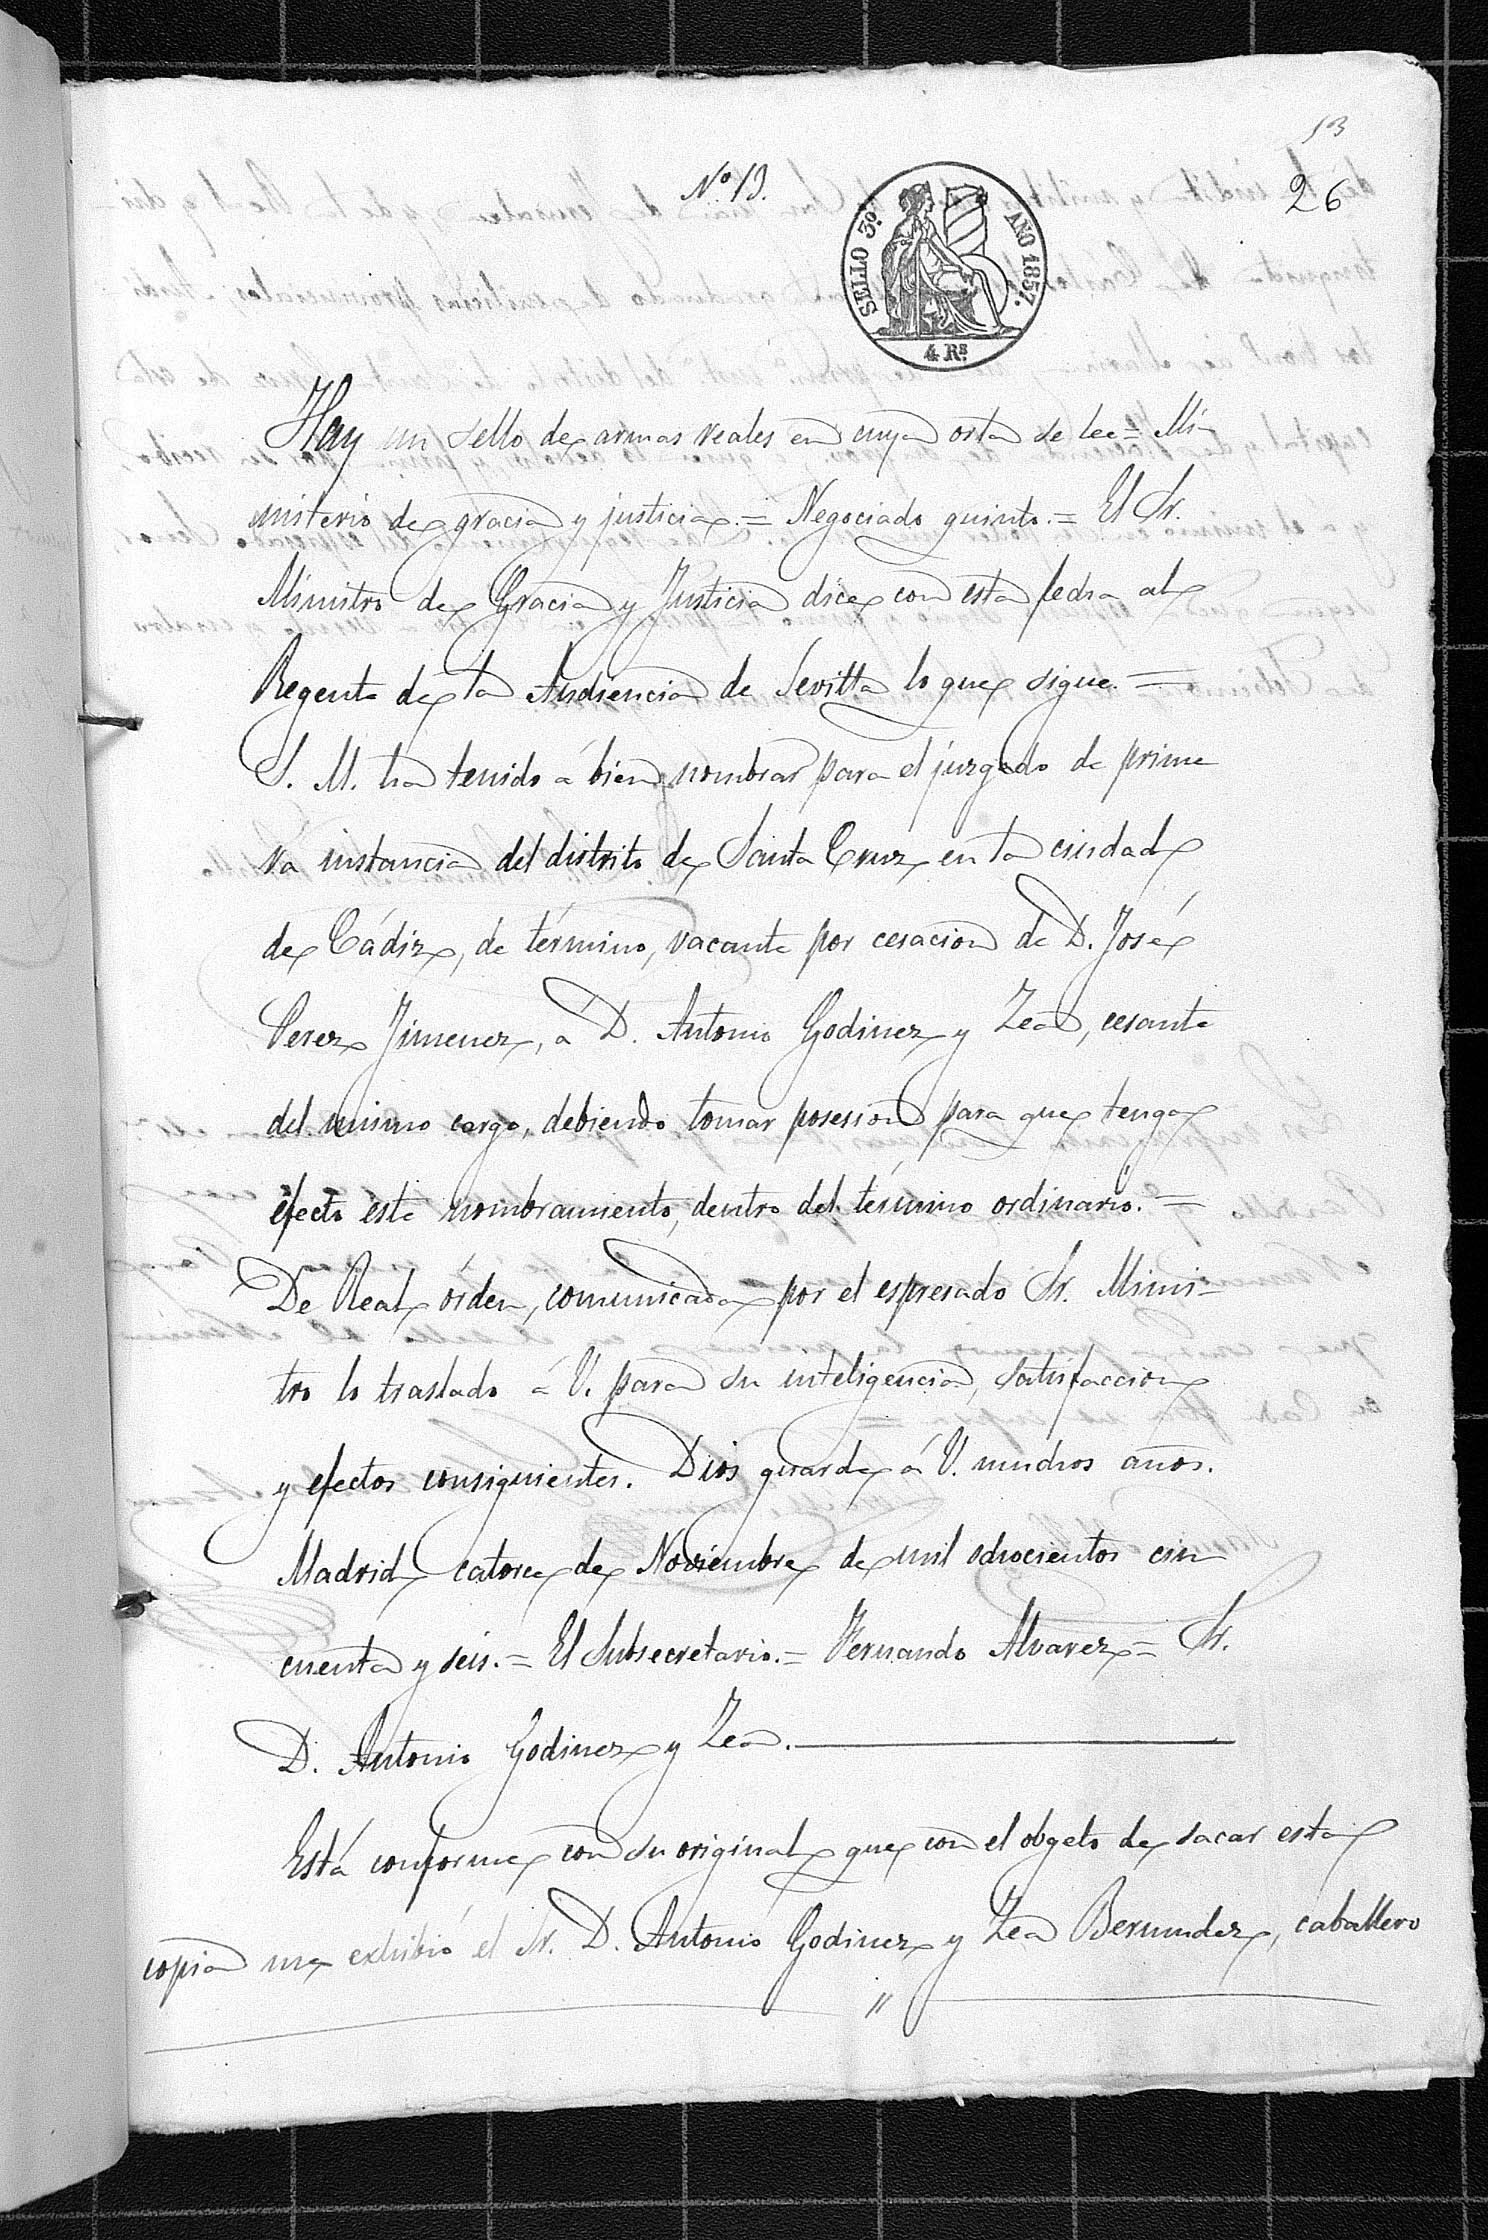 13
Nº 13.
26
SELLO 3º AÑO 1857.
4 Rs
Hay un sello de armas reales en cuya orla se lee = Mi-
nisterio de gracia y justicia. = Negociado quinto. = El Sr.
Ministro de Gracia y Justicia dice con esta fecha al
Regente de la Audiencia de Sevilla lo que sigue. =
S. M. ha tenido á bien nombrar para el juzgado de prime
ra instancia del distrito de Santa Cruz en la ciudad
de Cádiz, de término, vacante por cesacion de D. José
Perez Jimenez, a D. Antonio Godinez y Zea, cesante
del mismo cargo, debiendo tomar posesion para que tenga
efecto este nombramiento, dentro del término ordinario. =
De Real órden, comunicada por el espresado Sr. Minis-
tro lo traslado á V. para su inteligencia, satisfaccion
y efectos consiguientes. Dios guarde á V. muchos años.
Madrid catorce de Noviembre de mil ochocientos cin
cuenta y seis. = El Subsecretario. = Fernando Alvarez = Sr.
D. Antonio Godinez y Zea.
Está conforme con su original que con el obgeto de sacar esta
copia me exhibió el Sr. D. Antonio Godinez y Zea Bermudez, caballero
"